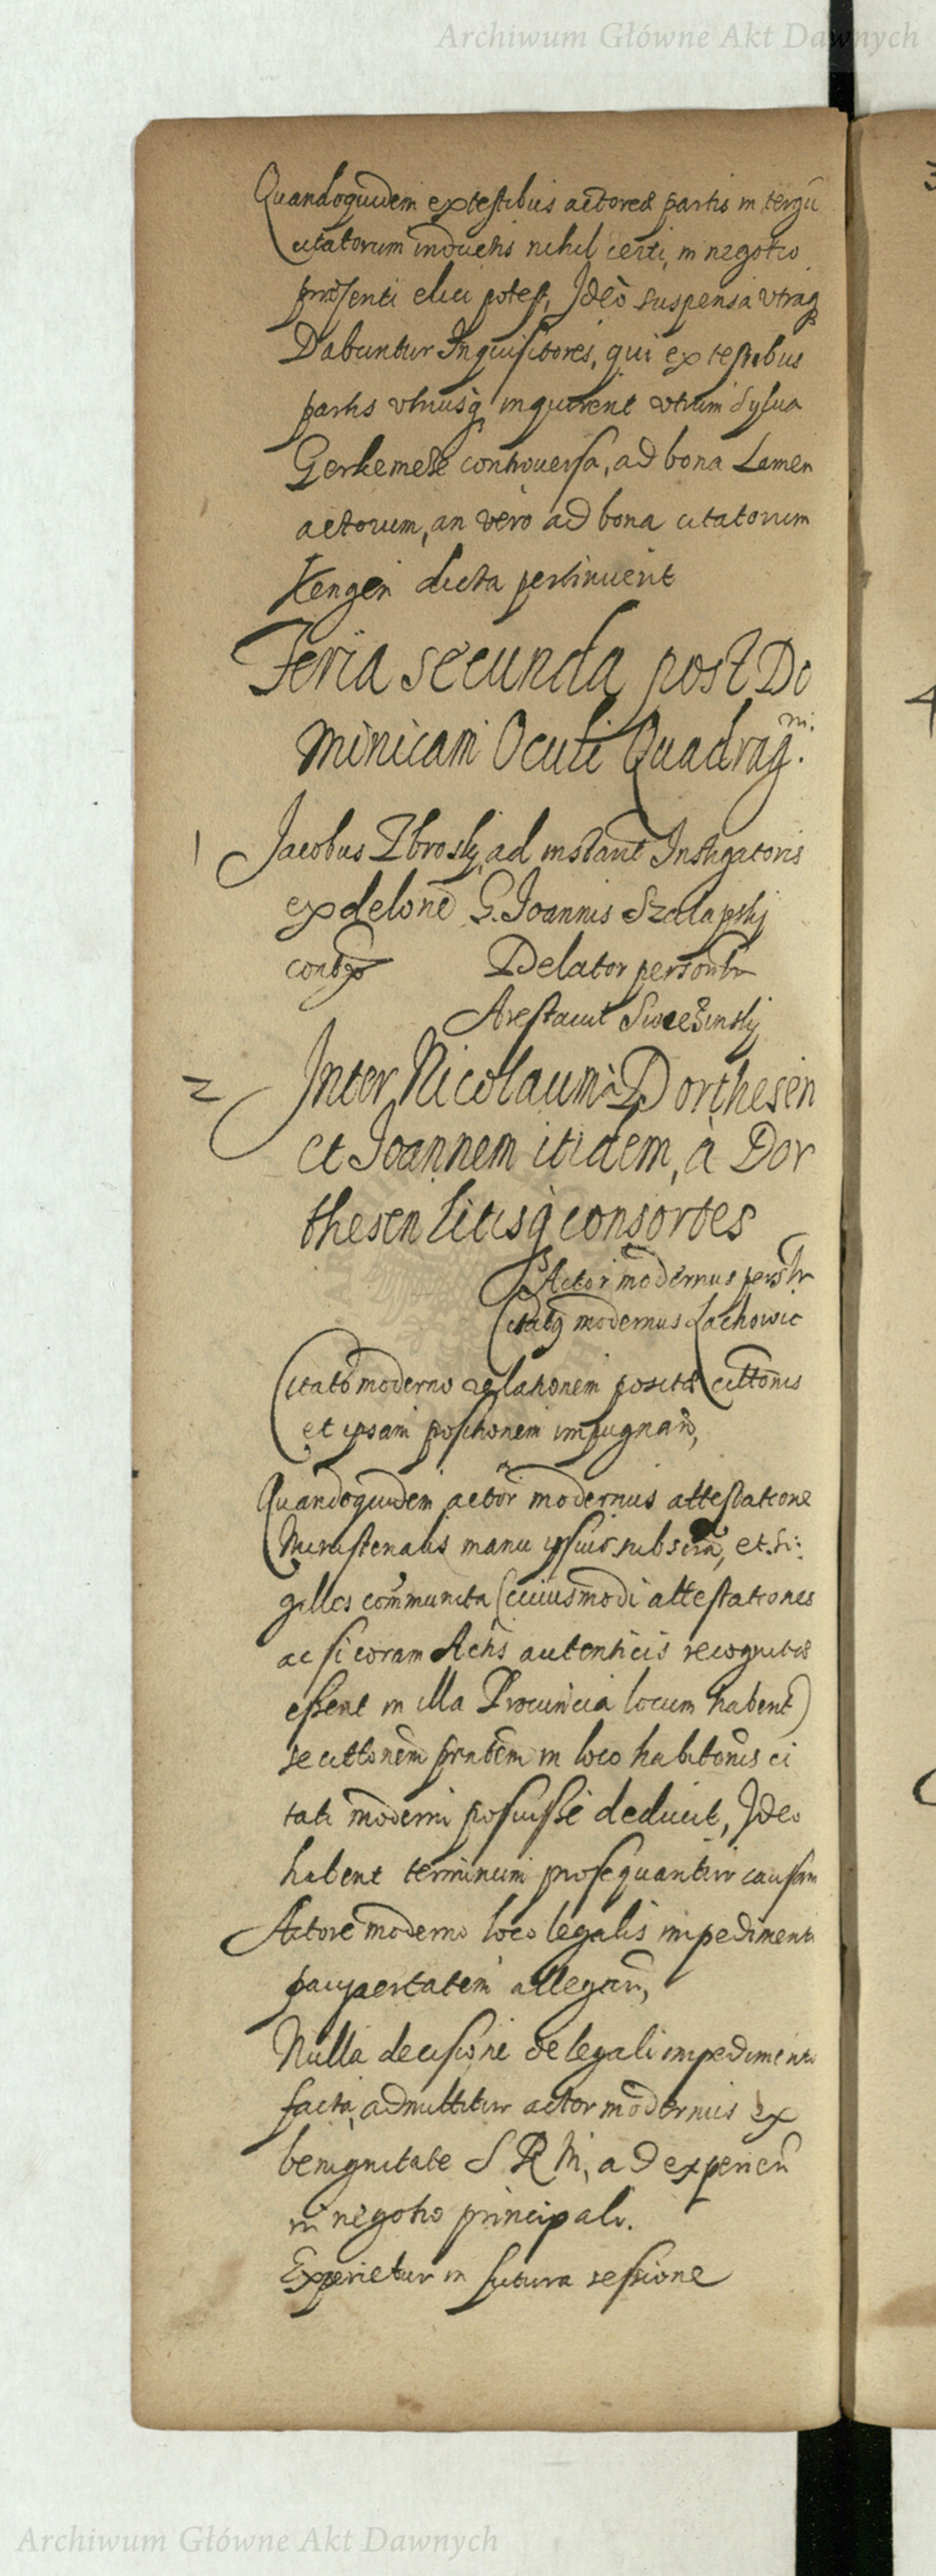 Archiwum Główne Akt Dawnych
Quandoquidem ex testibus actoreæ partis in tergū
citatorum inductis nihil certi in negotio
præsenti elici potest, Ideò suspensa vtraq
Dabuntur Inquisitores, qui ex testibus
partis vtriusq inquirent vtrum Sylua
Gerkemele controuersa, ad bona Lamen
actorum, an vero ad bona citatorum
Kengen dicta pertinuerit
Feria secunda post Do
minicam Oculi Quadrag.
1 Jacobus Zbroskj ad instant Instigatoris
ex delone G. Joannis Szalapskj
Delator personlr
Arestauit
2 Inter Nicolaum à Dorthesen
et Joannem itidem, à Dor
thesen litisq consortes
Actor modernus perslr
Citatg modernus Lachowic
Citato moderno relationem positæ cittonis
et ipsam positionem impugnan,
Quandoquidem actor modernus attestatione
Ministerialis manu ipsius subscra, et si:
gillis communita (cuiusmodi attestationes
ac si coram Actis autenticis recognitæ
essent in illa Prouincia locum habent)
se cittonem pntem in loco habitonis ci
tati moderni posuisse deducit, Ideo
habent terminum prosequantur causam
Actore moderno loco legalis impedimenti
paupertatem allegan,
Nulla decisione de legali impedimento
facta, admittitur actor modernus ex
benignitate S R M, ad experien
in negotio principali.
Experietur in futura sessione
3
4
Archiwum Główne Akt Dawnych